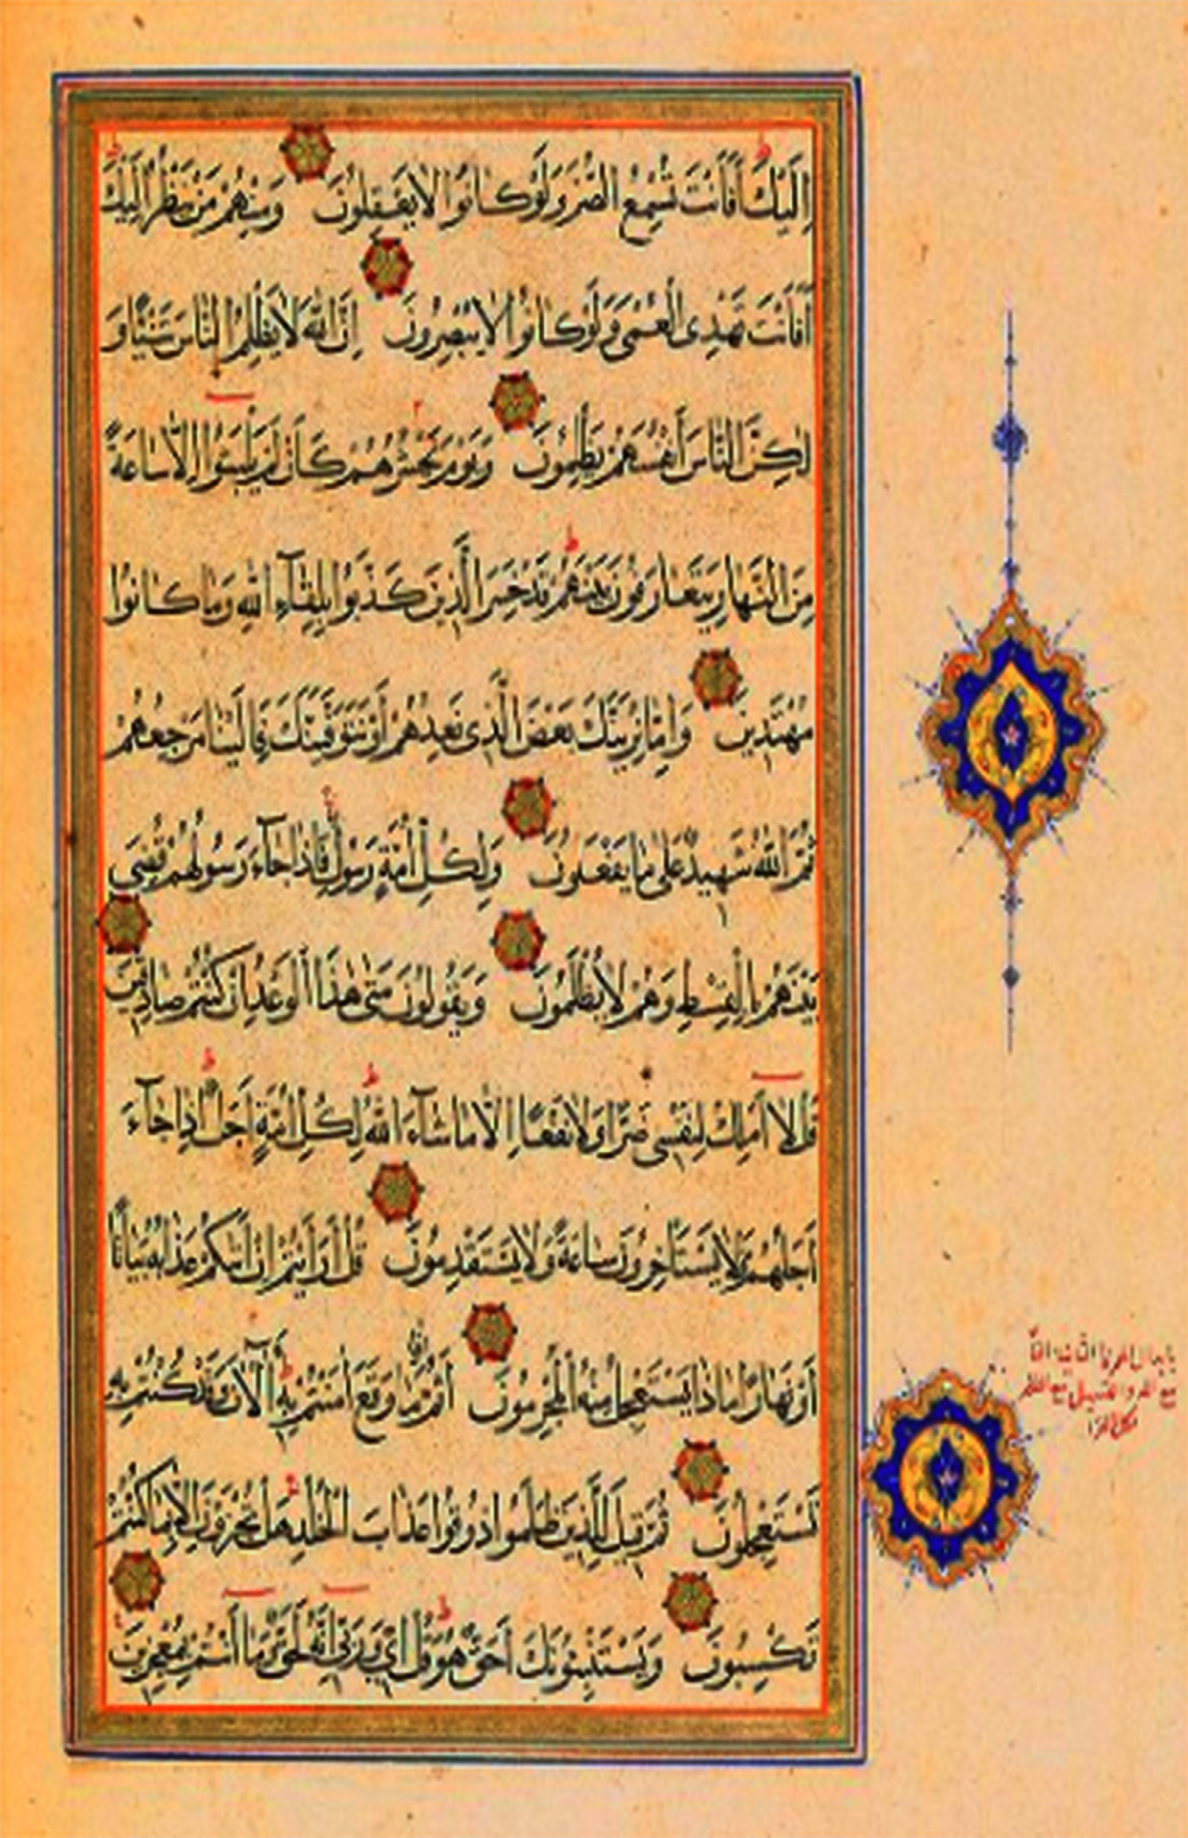 إِلَيْكَ أَفَأَنْتَ تُسْمِعُ الصُّمَّ وَلَوْ كَانُوا لَا يَعْقِلُونَ وَمِنْهُمْ مَنْ يَنْظُرُ إِلَيْكَ
أَفَأَنْتَ تَهْدِي الْعُمْيَ وَلَوْ كَانُوا لَا يُبْصِرُونَ إِنَّ اللَّهَ لَا يَظْلِمُ النَّاسَ شَيْئًا وَ
لَكِنَّ النَّاسَ أَنْفُسَهُمْ يَظْلِمُونَ وَيَوْمَ يَحْشُرُهُمْ كَأَنْ لَمْ يَلْبَثُوا إِلَّا سَاعَةً
مِنَ النَّهَارِ يَتَعَارَفُونَ بَيْنَهُمْ قَدْ خَسِرَ الَّذِينَ كَذَّبُوا بِلِقَاءِ اللَّهِ وَمَا كَانُوا
مُهْتَدِينَ وَإِمَّا نُرِيَنَّكَ بَعْضَ الَّذِي نَعِدُهُمْ أَوْ نَتَوَفَّيَنَّكَ فَإِلَيْنَا مَرْجِعُهُمْ
ثُمَّ اللَّهُ شَهِيدٌ عَلَى مَا يَفْعَلُونَ وَلِكُلِّ أُمَّةٍ رَسُولٌ فَإِذَا جَاءَ رَسُولُهُمْ قُضِيَ
بَيْنَهُمْ بِالْقِسْطِ وَهُمْ لَا يُظْلَمُونَ وَيَقُولُونَ مَتَى هَذَا الْوَعْدُ إِنْ كُنْتُمْ صَادِقِينَ
قُلْ لَا أَمْلِكُ لِنَفْسِي ضَرًّا وَلَا نَفْعًا إِلَّا مَا شَاءَ اللَّهُ لِكُلِّ أُمَّةٍ أَجَلٌ إِذَا جَاءَ
أَجَلُهُمْ فَلَا يَسْتَأْخِرُونَ سَاعَةً وَلَا يَسْتَقْدِمُونَ قُلْ أَرَأَيْتُمْ إِنْ أَتَاكُمْ عَذَابُهُ بَيَاتًا
أَوْ نَهَارًا مَاذَا يَسْتَعْجِلُ مِنْهُ الْمُجْرِمُونَ أَثُمَّ إِذَا مَا وَقَعَ آمَنْتُمْ بِهِ آلْآنَ وَقَدْ كُنْتُمْ بِهِ
تَسْتَعْجِلُونَ ثُمَّ قِيلَ لِلَّذِينَ ظَلَمُوا ذُوقُوا عَذَابَ الْخُلْدِ هَلْ تُجْزَوْنَ إِلَّا بِمَا كُنْتُمْ
تَكْسِبُونَ وَيَسْتَنْبِئُونَكَ أَحَقٌّ هُوَ قُلْ إِي وَرَبِّي إِنَّهُ لَحَقٌّ وَمَا أَنْتُمْ بِمُعْجِزِينَ